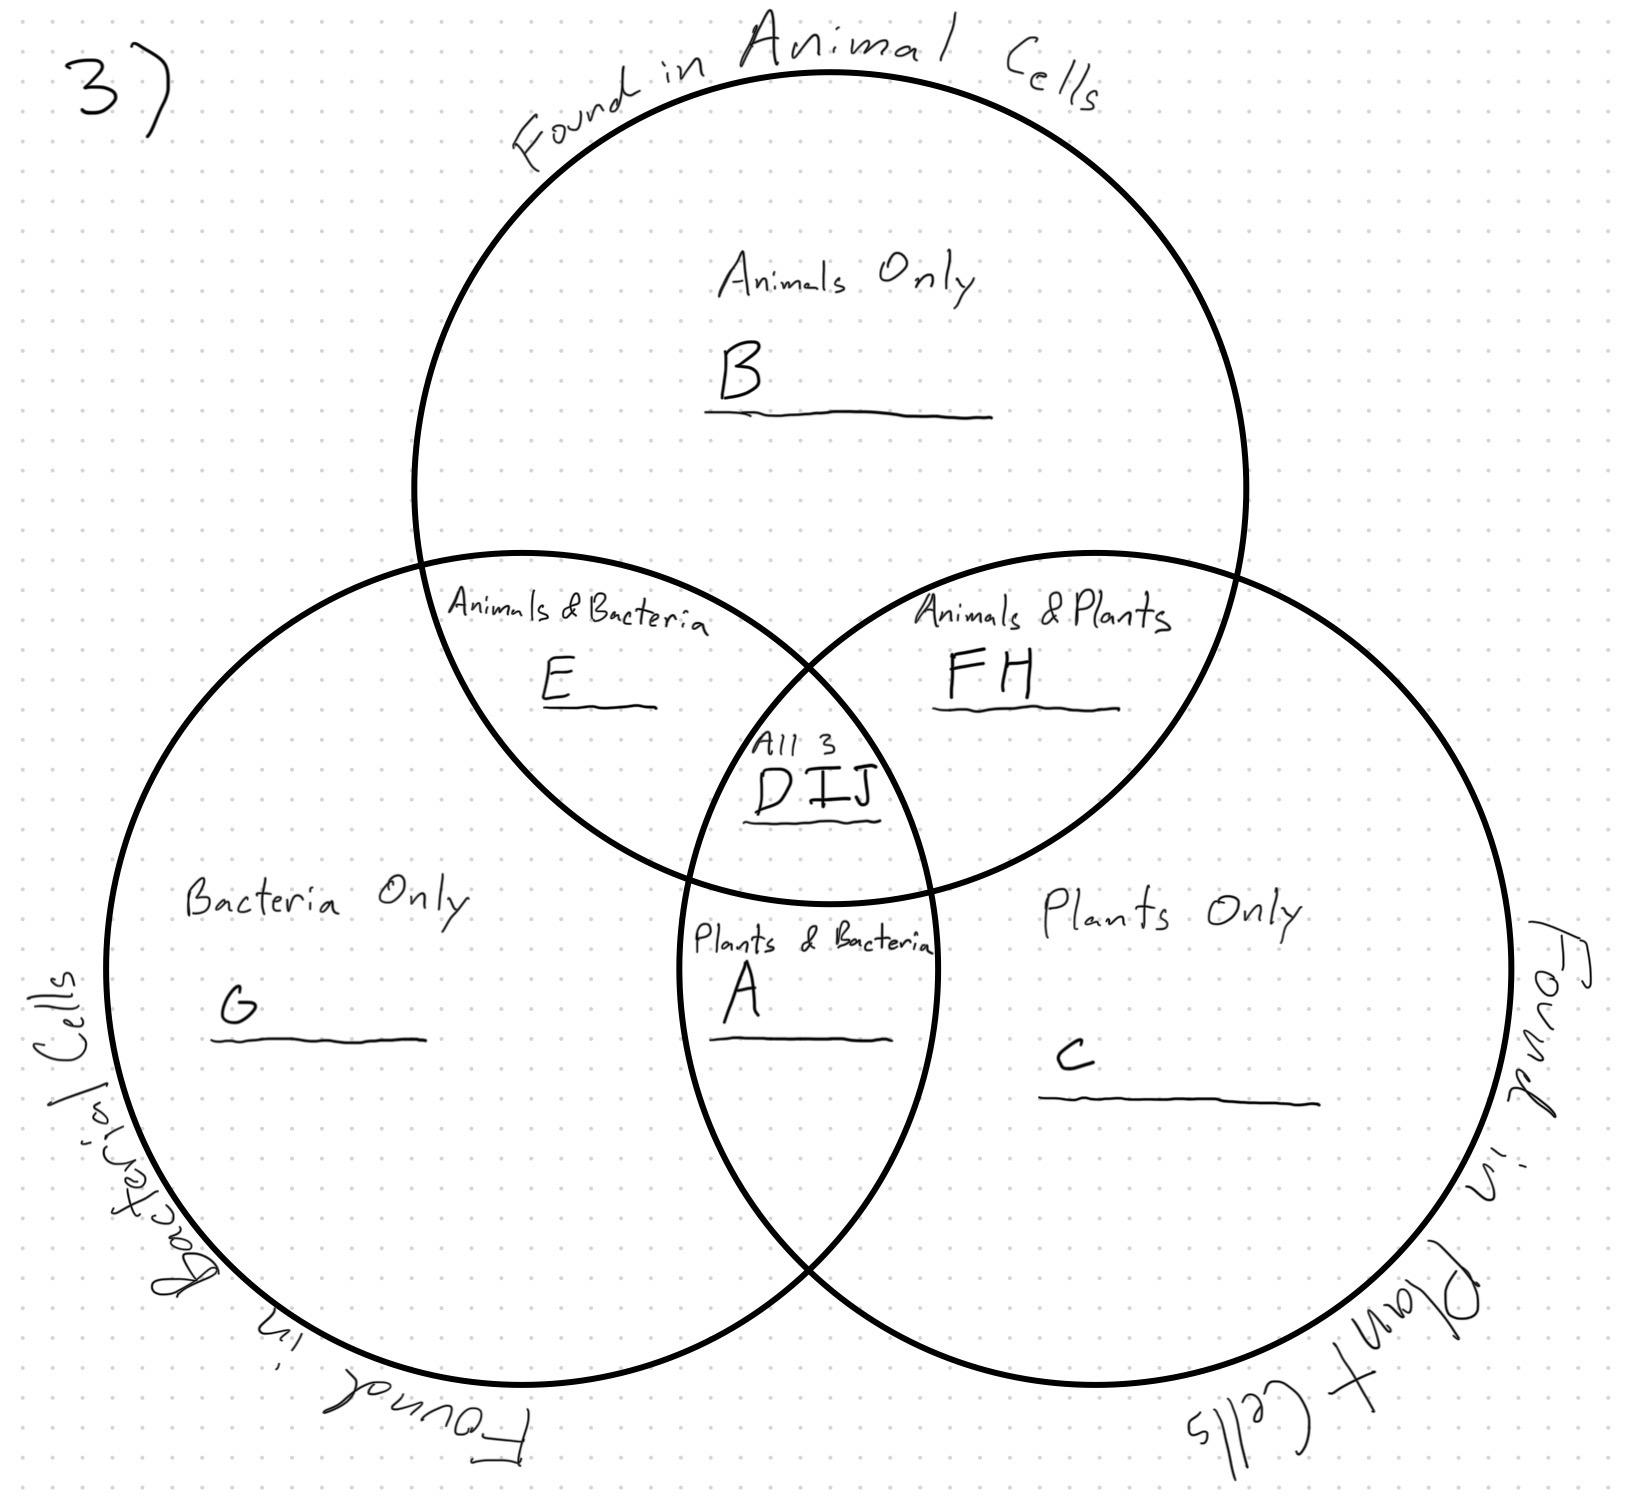 3)
Found in Animal Cells
Animals Only
B
Animals & Bacteria
E
Animals & Plants
FH
All 3
DIJ
Bacteria Only
G
Plants & Bacteria
A
Plants Only
C
Found in Bacterial Cells
Found in Plant Cells